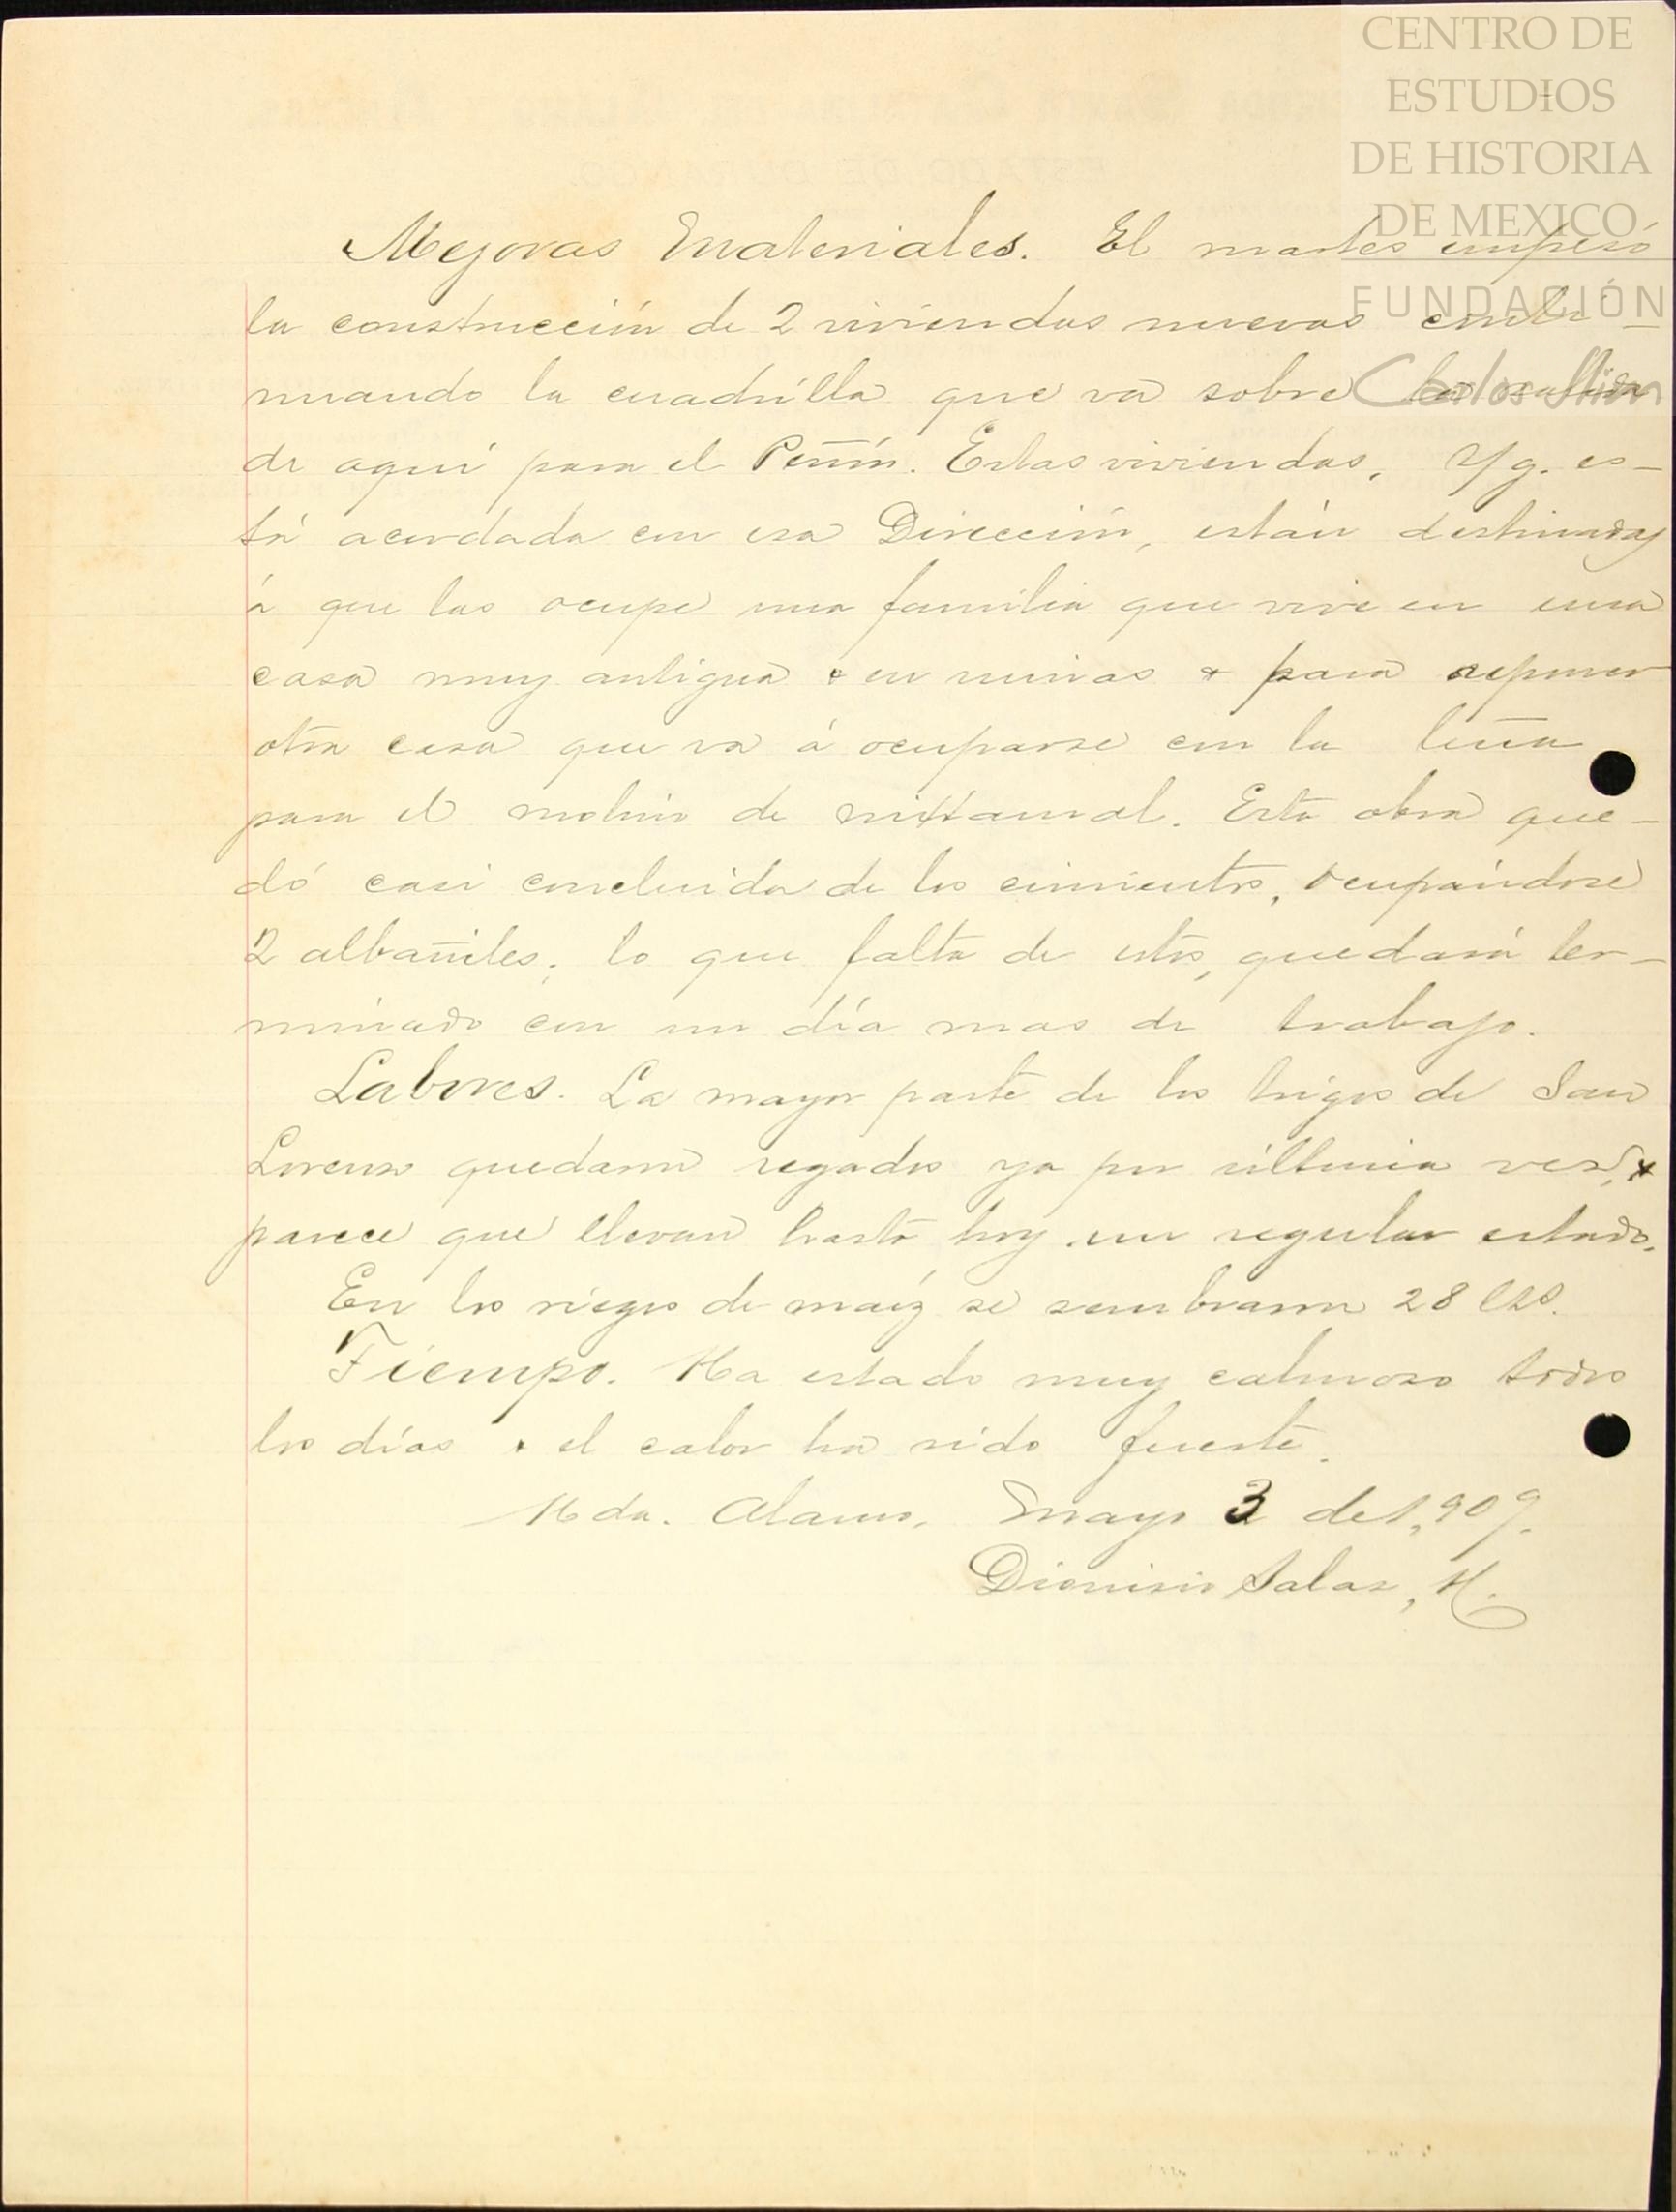 CENTRO DE
ESTUDIOS
DE HISTORIA
DE MEXICO
FUNDACIÓN
Carlos Slim
Mejoras Materiales. El martes empesó
la construcción de 2 viviendas nuevas conti-
nuando la cuadrilla que va sobre la salida
de aquí para el Peñón. Estas viviendas, y g. es-
tá acordada con esa Dirección, están destinadas
á que las ocupe una familia que vive en una
casa muy antigua & en ruinas & para reponer
otra casa que va á ocuparse con la leña
para el molino de nixtamal. Esta obra que-
dó casi concluida de los cimientos, ocupándose
2 albañiles; lo que falta de estos, quedará ter-
minado con un día mas de trabajo.
Labores. La mayor parte de los trigos de San
Lorenzo quedaron regados ya por última vez, &
parece que llevan hasta hoy un regular estado.
En los riegos de maíz se sembraron 28
Tiempo. Ha estado muy calmoso todos
los días & el calor ha sido fuerte.
Hda. Alamo, Mayo 3 de 1,909.
Dionisio Salas, H.